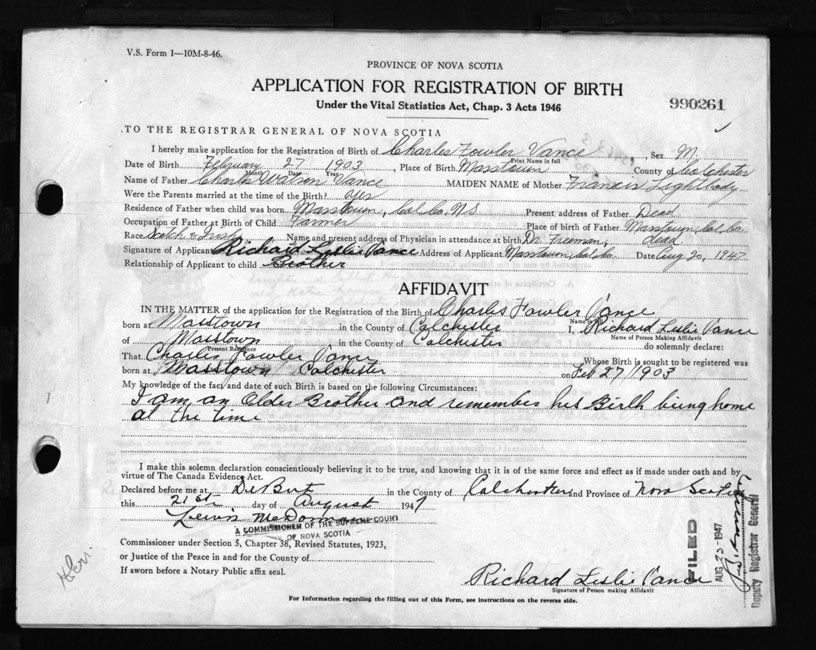 V.S. Form 1—10M-8-46.
PROVINCE OF NOVA SCOTIA
APPLICATION FOR REGISTRATION OF BIRTH
Under the Vital Statistics Act, Chap. 3 Acts 1946
990261
TO THE REGISTRAR GENERAL OF NOVA SCOTIA
I hereby make application for the Registration of Birth of Charles Fowler Vance, Sex M.
Print Name in full
Date of Birth February 27 1903, Place of Birth Masstown County of Colchester
Month Day Year
Name of Father Charles Watson Vance MAIDEN NAME of Mother Francis Lightbody
Were the Parents married at the time of the Birth? yes
Residence of Father when child was born Masstown, Col. Co. N.S. Present address of Father Dead
Occupation of Father at Birth of Child Farmer Place of birth of Father Masstown, Col. Co.
Race Scotch & Irish Name and present address of Physician in attendance at birth Dr. Freeman, dead
Signature of Applicant Richard Leslie Vance Address of Applicant Masstown, Col. Co. Date Aug 20, 1947
Relationship of Applicant to child Brother
AFFIDAVIT
IN THE MATTER of the application for the Registration of the Birth of Charles Fowler Vance
Name in full
born at Masstown in the County of Colchester I, Richard Leslie Vance
Name of Person Making Affidavit
of Masstown in the County of Colchester do solemnly declare:
Present Residence
That Charles Fowler Vance Whose Birth is sought to be registered was
born at Masstown Colchester on Feb 27/1903
My knowledge of the fact and date of such Birth is based on the following Circumstances:
I am an Older Brother and remember his Birth being home
at the time
I make this solemn declaration conscientiously believing it to be true, and knowing that it is of the same force and effect as if made under oath and by
virtue of The Canada Evidence Act.
Declared before me at DeBert in the County of Colchester and Province of Nova Scotia
this 21st day of August 1947
Lewis
A COMMISSIONER OF THE SUPREME COURT
OF NOVA SCOTIA
Commissioner under Section 5, Chapter 38, Revised Statutes, 1923,
or Justice of the Peace in and for the County of
If sworn before a Notary Public affix seal.
Richard Leslie Vance
Signature of Person making Affidavit
For Information regarding the filling out of this Form, see instructions on the reverse side.
FILED
AUG 23 1947
Deputy Registrar General